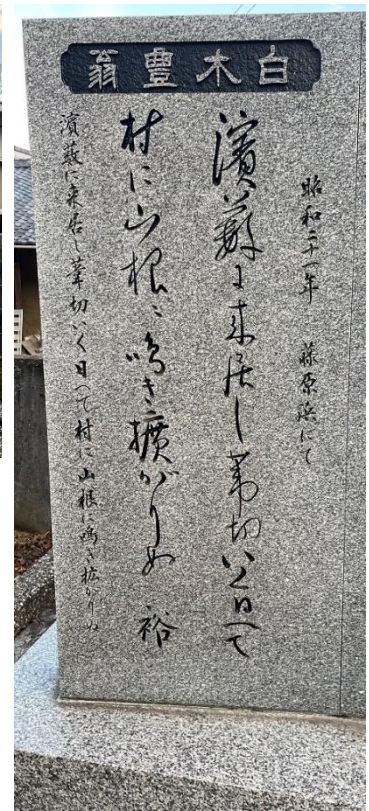 白木豊翁
昭和二十一年 藤原浜にて
濱藪に来居し葦切いく日へて
村に山根に鳴き擴がりぬ 裕
濱藪に来居し葦切いく日へて村に山根に鳴き拡がりぬ